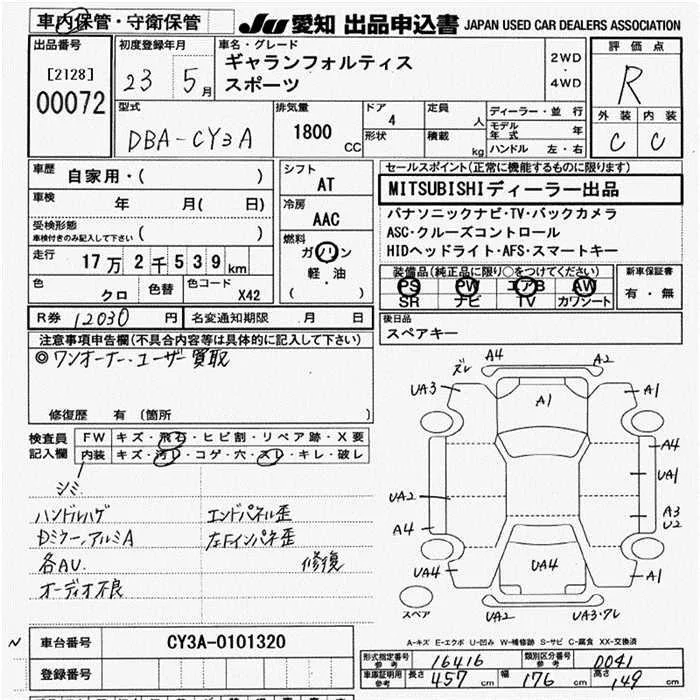 車内保管・守衛保管
JU 愛知 出品申込書 JAPAN USED CAR DEALERS ASSOCIATION
出品番号
[2128]
00072
初度登録年月
23 5月
車名・グレード
ギャランフォルティス
スポーツ
2WD
・
4WD
評価点
R
外装 内装
C C
型式
DBA-CY3A
排気量
1800 CC
ドア
4
形状
定員
人
積載
kg
ディーラー・並行
モデル年式 年
ハンドル 左・右
車歴
自家用・( )
車検
年 月( 日)
受検形態
車検付きのみ記入して下さい ( )
走行
17万2千539km
色
クロ
色替
色コード
X42
シフト
AT
冷房
AAC
燃料
ガソリン
軽・油
( )
セールスポイント(正常に機能するものに限ります)
MITSUBISHIディーラー出品
パナソニックナビ・TV・バックカメラ
ASC・クルーズコントロール
HIDヘッドライト・AFS・スマートキー
装備品(純正品に限り○をつけてください)
PS PW エアB AW
SR ナビ TV カワシート
新車保証書
有・無
R券 12030 円
名変通知期限 月 日
後日品
スペアキー
注意事項申告欄(不具合内容等は具体的に記入して下さい)
◎ワンオーナー、ユーザー買取
修復歴 有 (箇所 )
検査員
記入欄
FW キズ・飛石・ヒビ割・リペア跡・X要
内装 キズ・汚レ・コゲ・穴・スレ・キレ・破レ
シミ
ハンドルハゲ
Dミラー、アルミA
各AU.
オーディオ不良
エンドパネル歪
左Fインパネ歪
修復
ズレ A4 A2
UA3 A1 A1
A4
UA2 UA1
A4 A3
U2
UA4 UA4 A1
スペア
UA2 UA3・ワレ
A-キズ E-エクボ U-凹み W-補修跡 S-サビ C-腐食 XX-交換済
車台番号 CY3A-0101320
登録番号
型式指定番号
参考
16416
類別区分番号
参考
0041
車庫証明用
参考
長さ 457 cm 幅 176 cm 高さ 149 cm